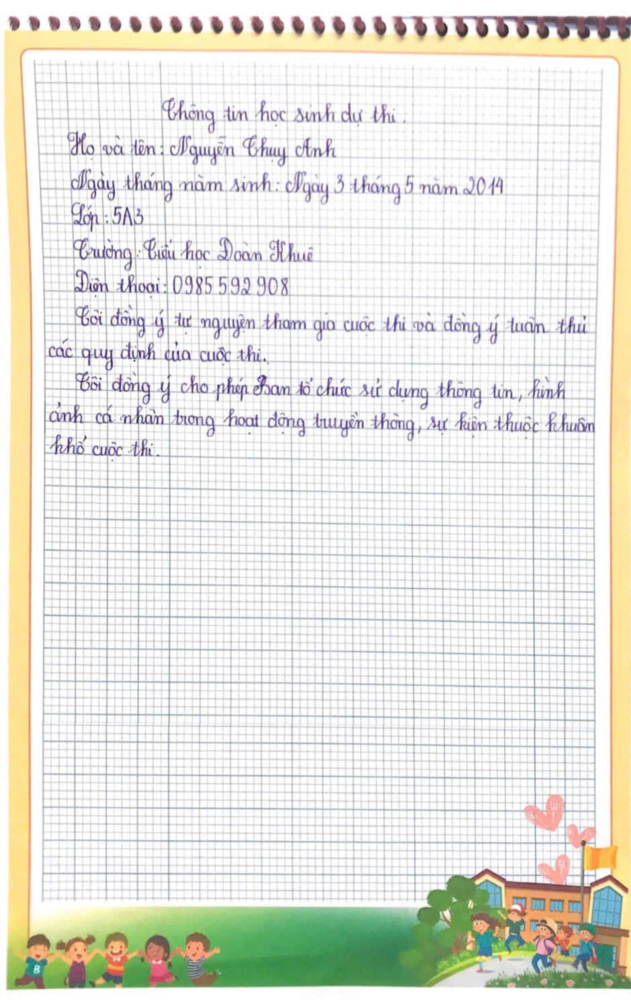 Thông tin học sinh dự thi.
Họ và tên: Nguyễn Thuy Anh
Ngày tháng năm sinh: Ngày 3 tháng 5 năm 2014
Lớp: 5A3
Trường: Tiểu học Đoàn Khuê
Điện thoại: 0985 592 908
Tôi đồng ý tự nguyện tham gia cuộc thi và đồng ý tuân thủ
các quy định của cuộc thi.
Tôi đồng ý cho phép Ban tổ chức sử dụng thông tin, hình
ảnh cá nhân trong hoạt động truyền thông, sự kiện thuộc khuôn
khổ cuộc thi.
B